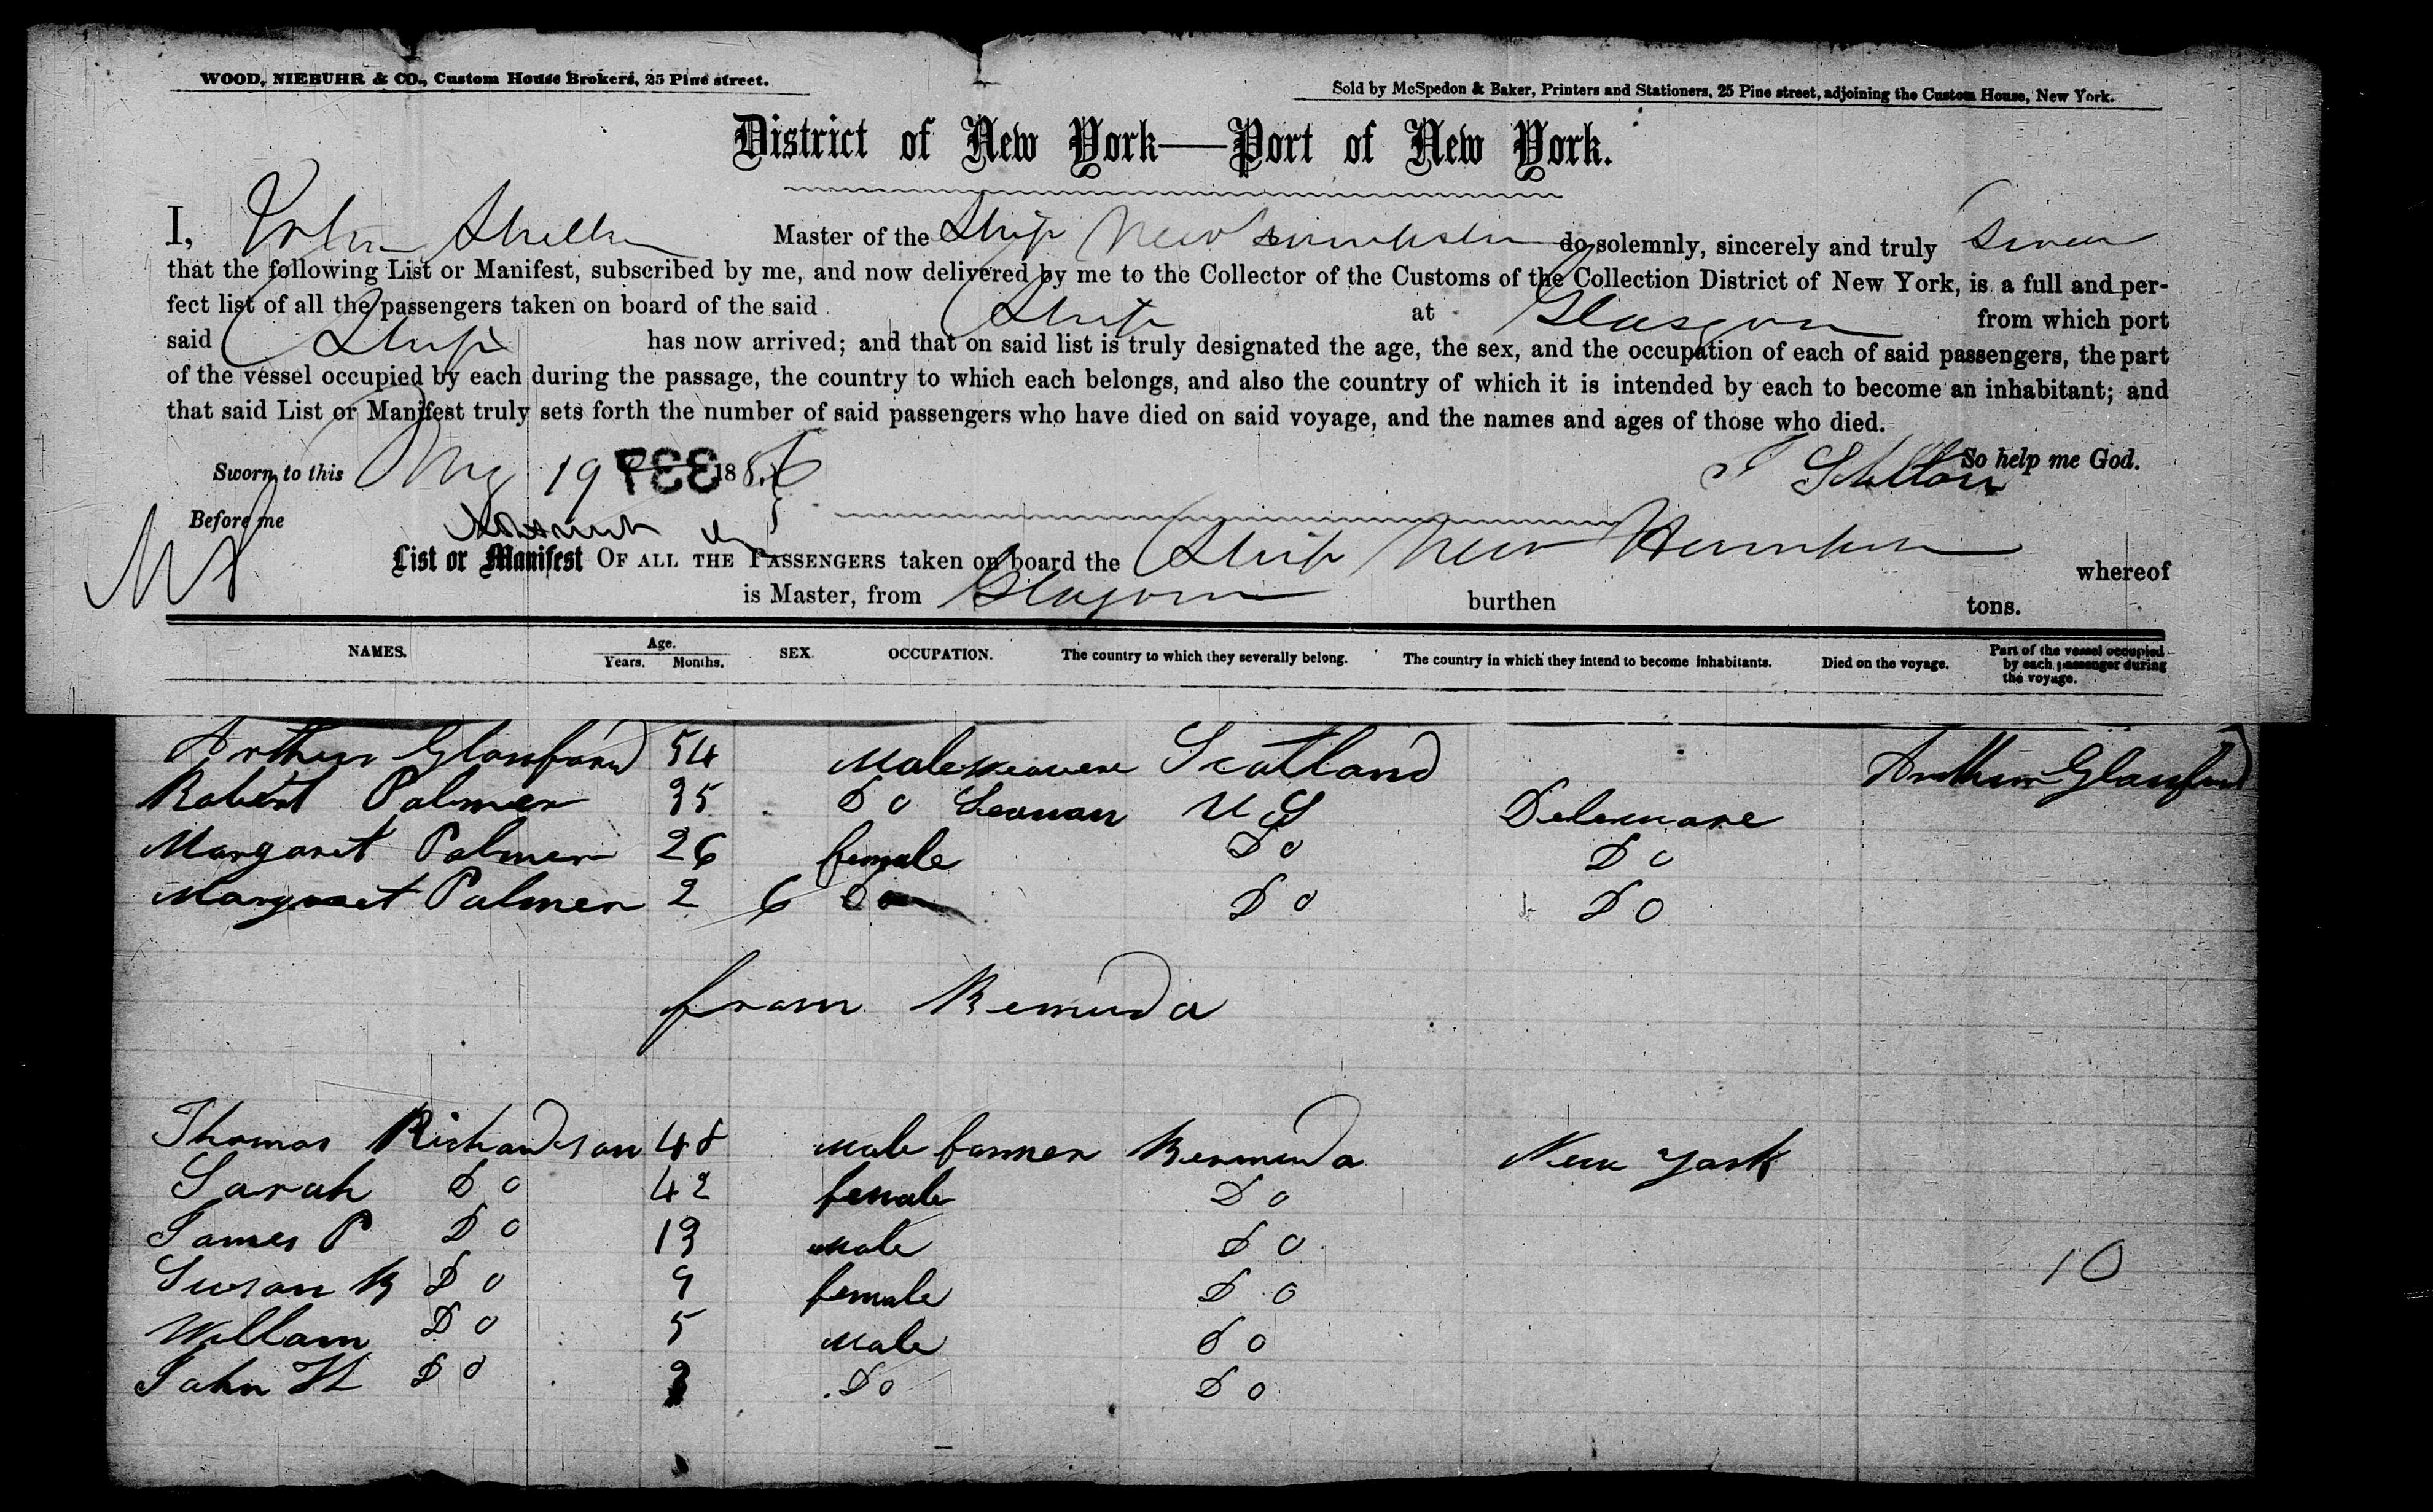 WOOD, NIEBUHR & CO., Custom House Brokers, 25 Pine street.
Sold by McSpedon & Baker, Printers and Stationers, 25 Pine street, adjoining the Custom House, New York.
District of New York—Port of New York.
I, John Master of the Ship New do solemnly, sincerely and truly swear
that the following List or Manifest, subscribed by me, and now delivered by me to the Collector of the Customs of the Collection District of New York, is a full and per-
fect list of all the passengers taken on board of the said Ship at Glasgow from which port
said Ship has now arrived; and that on said list is truly designated the age, the sex, and the occupation of each of said passengers, the part
of the vessel occupied by each during the passage, the country to which each belongs, and also the country of which it is intended by each to become an inhabitant; and
that said List or Manifest truly sets forth the number of said passengers who have died on said voyage, and the names and ages of those who died.
Sworn to this 19 337 18 So help me God.
Before me
List or Manifest OF ALL THE PASSENGERS taken on board the Ship New whereof
is Master, from Glasgow burthen tons.
NAMES. Age. Years. Months. SEX. OCCUPATION. The country to which they severally belong. The country in which they intend to become inhabitants. Died on the voyage. Part of the vessel occupied by each passenger during the voyage.
Arthur Glanford 54 Male Scotland Arthur Glanford
Robert Palmer 35 Do Seaman U S Deleware
Margaret Palmer 26 female Do Do
Margaret Palmer 2 6 Do Do Do
from Bemuda
Thomas Richardson 48 Male farmer Bermuda New York
Sarah Do 42 female Do
James P Do 13 Male Do
Susan B Do 9 female Do
10
Willam Do 5 Male Do
John H Do Do Do